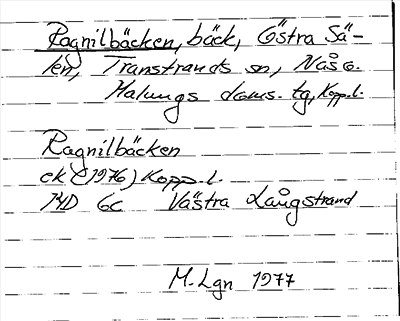 Ragnilbäcken, bäck, Östra Sä-
len, Transtrands sn, Nås o.
Malungs doms. tg, Kopp. l.
Ragnilbäcken
ek (1976) Kopp. l.
14D 6c Västra Långstrand
M. Lgn 1977